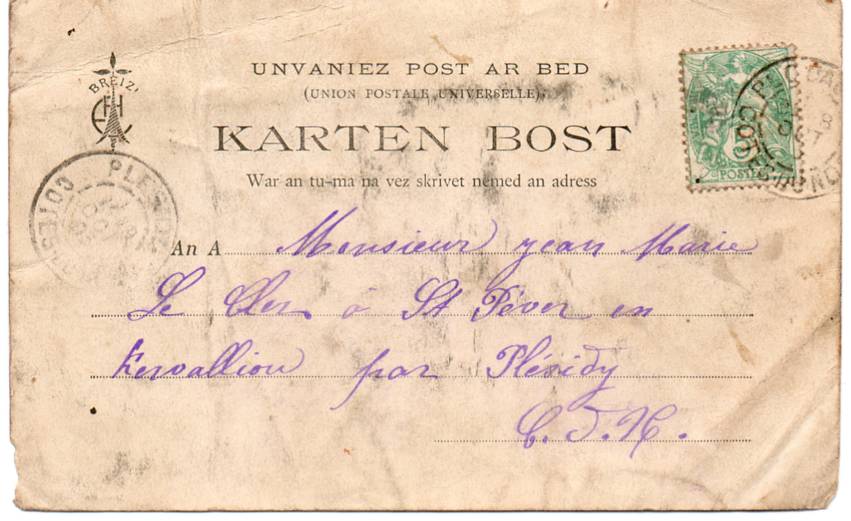 BREIZ
UNVANIEZ POST AR BED
(UNION POSTALE UNIVERSELLE).
KARTEN BOST
War an tu-ma na vez skrivet nemed an adress
POSTES
PLES
COTES
COTES-DU-NORD
An A Monsieur jean Marie
Le Clerc à St Péver en
Kervallion par Plésidy
C. d. N.